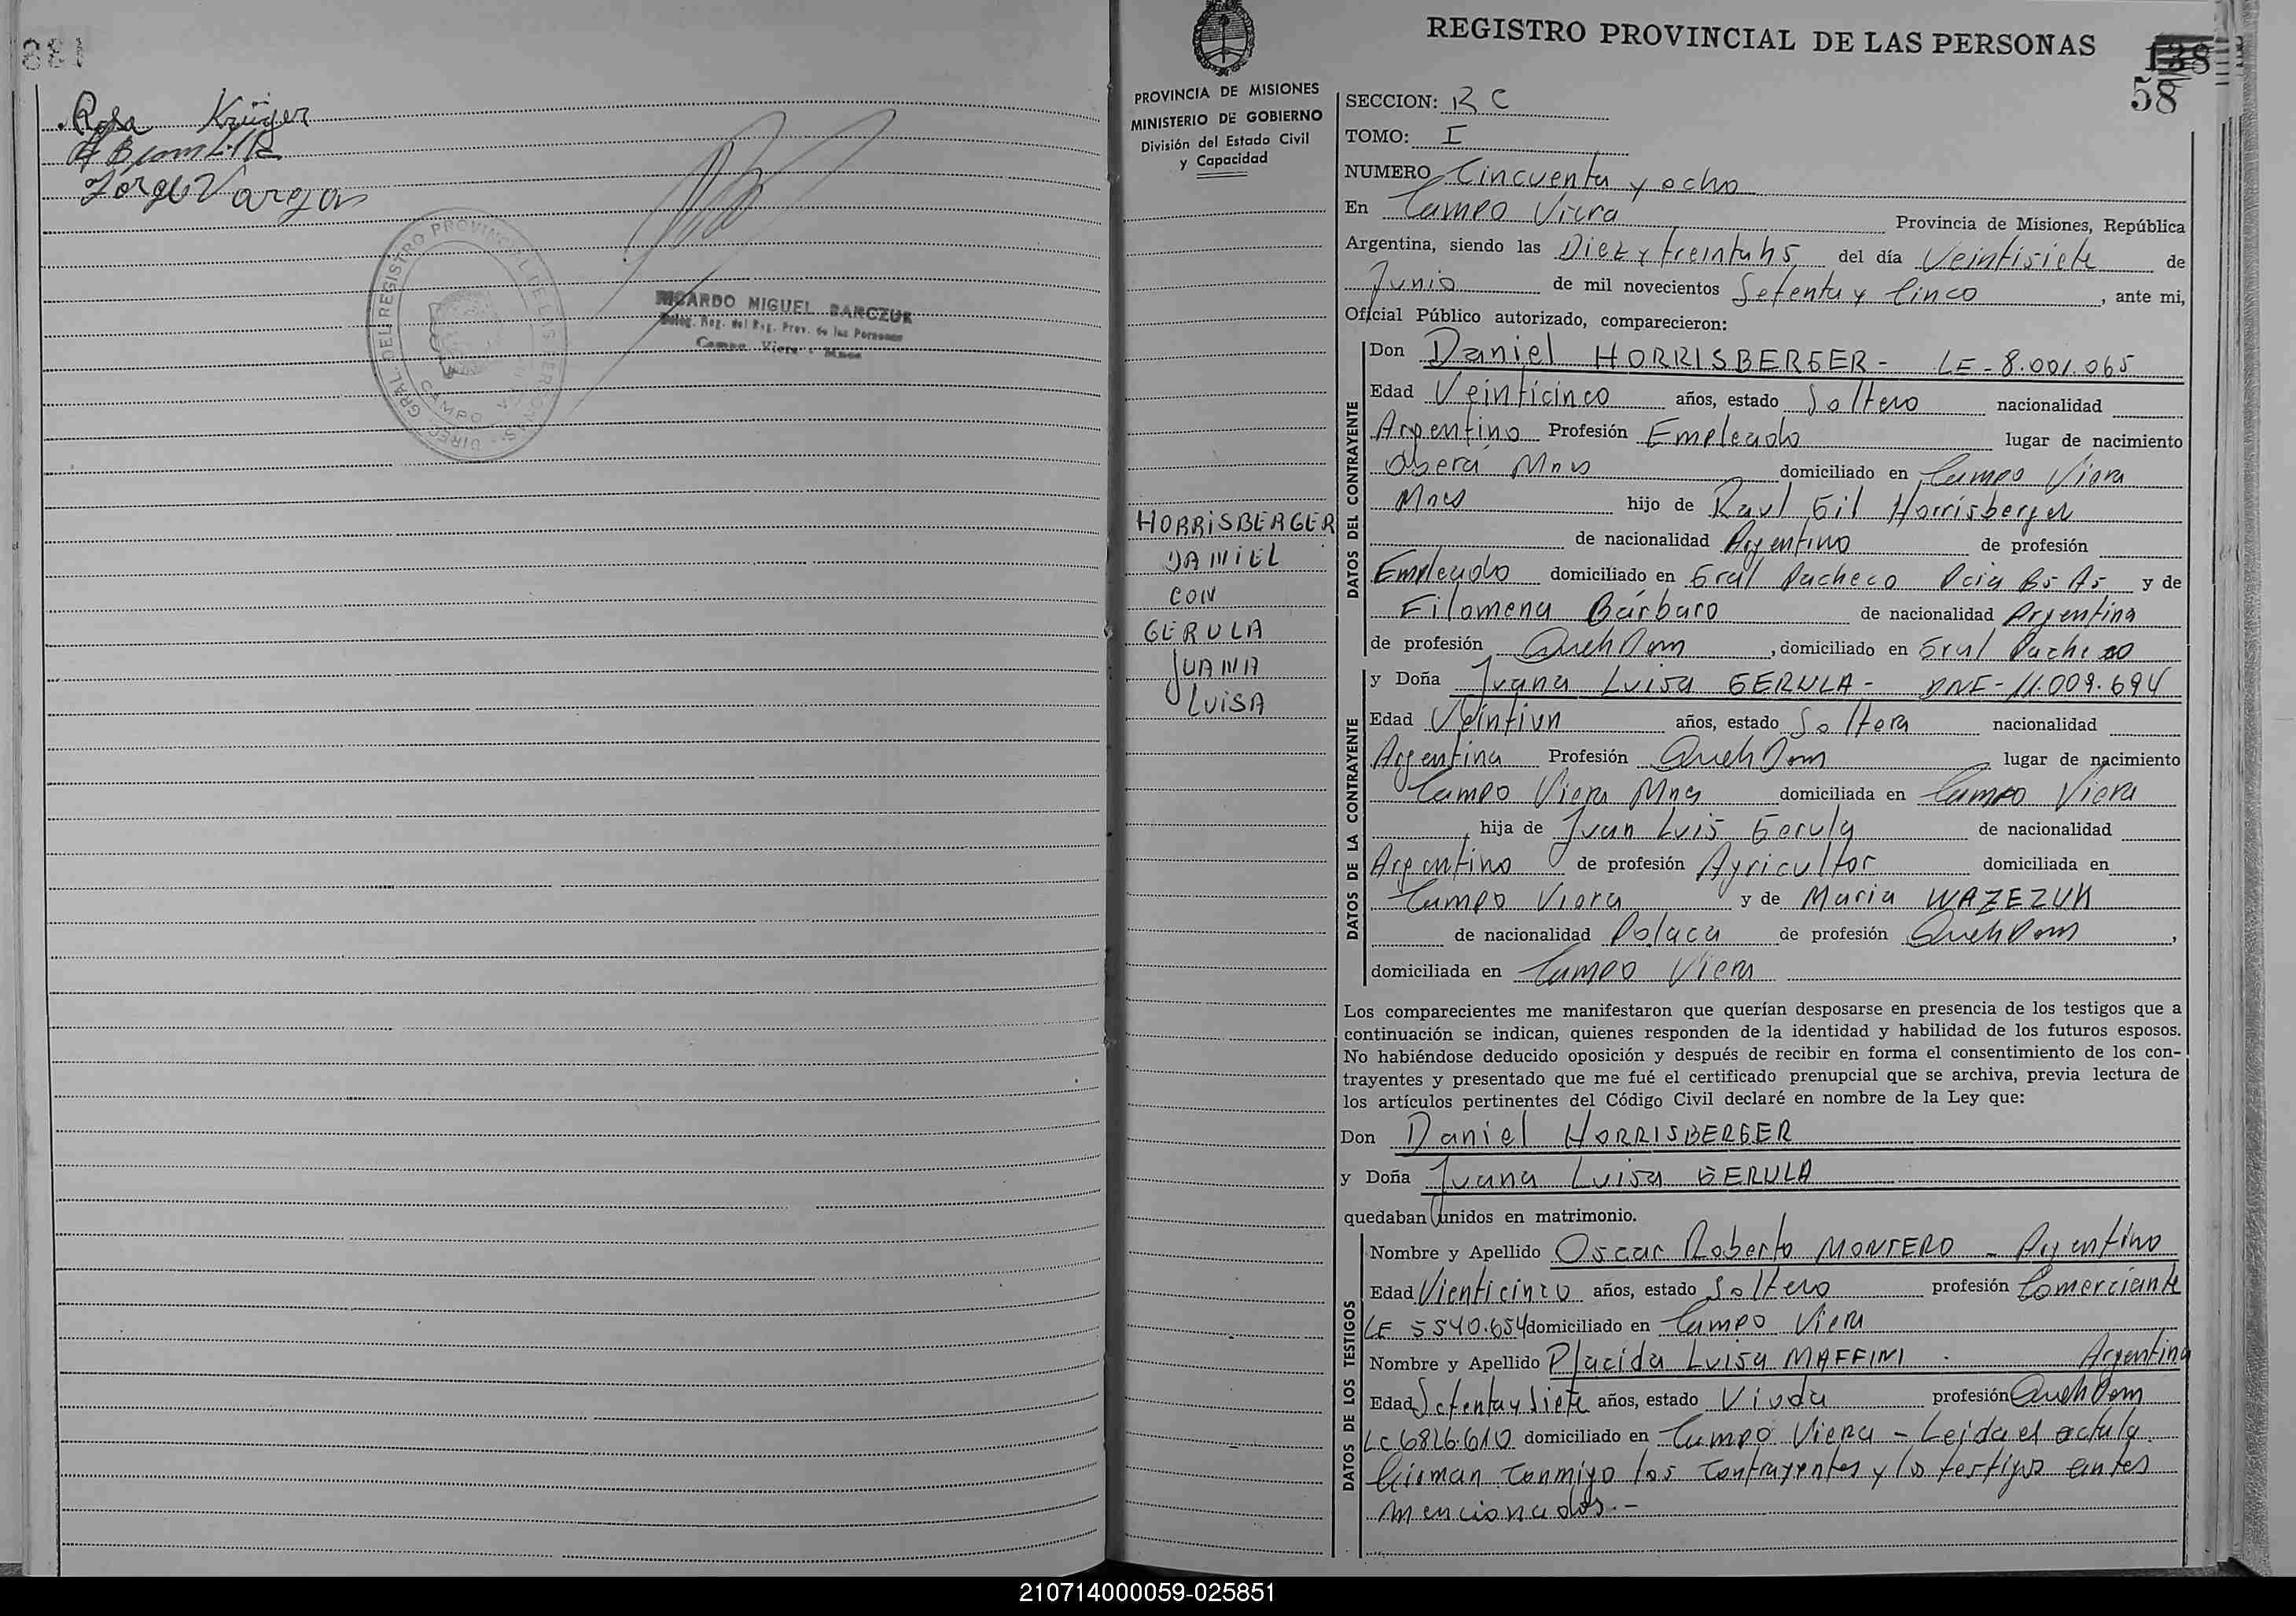 188
Rosa Krüger
Jorge Vargas
DIREC. GRAL. DEL REGISTRO PROVINCIAL DE LAS PERSONAS
CAMPO VIERA
RICARDO MIGUEL BARCZUK
Deleg. Reg. del Reg. Prov. de las Personas
Campo Viera - Mnes
REGISTRO PROVINCIAL DE LAS PERSONAS
138
58
PROVINCIA DE MISIONES
MINISTERIO DE GOBIERNO
División del Estado Civil
y Capacidad
HORRISBERGER
DANIEL
CON
GERULA
JUANA
LUISA
SECCION: RC
TOMO: I
NUMERO Cincuenta y ocho
En Campo Viera Provincia de Misiones, República
Argentina, siendo las Diez y treinta hs del día Veintisiete de
Junio de mil novecientos Setenta y Cinco, ante mi,
Oficial Público autorizado, comparecieron:
DATOS DEL CONTRAYENTE
Don Daniel HORRISBERGER - LE - 8.001.065
Edad Veinticinco años, estado Soltero nacionalidad
Argentino Profesión Empleado lugar de nacimiento
Oberá Mnes domiciliado en Campo Viera
Mnes hijo de Raul Gil Horrisberger
de nacionalidad Argentino de profesión
Empleado domiciliado en Gral Pacheco Pcia Bs As y de
Filomena Bárbaro de nacionalidad Argentina
de profesión Queh Dom, domiciliado en Gral Pacheco
DATOS DE LA CONTRAYENTE
y Doña Juana Luisa GERULA - DNI - 11.009.694
Edad Veintiun años, estado Soltera nacionalidad
Argentina Profesión Queh Dom lugar de nacimiento
Campo Viera Mnes domiciliada en Campo Viera
, hija de Juan Luis Gerula de nacionalidad
Argentino de profesión Agricultor domiciliada en
Campo Viera y de Maria WAZEZUK
de nacionalidad Polaca de profesión Queh Dom,
domiciliada en Campo Viera
Los comparecientes me manifestaron que querían desposarse en presencia de los testigos que a
continuación se indican, quienes responden de la identidad y habilidad de los futuros esposos.
No habiéndose deducido oposición y después de recibir en forma el consentimiento de los con-
trayentes y presentado que me fué el certificado prenupcial que se archiva, previa lectura de
los artículos pertinentes del Código Civil declaré en nombre de la Ley que:
Don Daniel HORRISBERGER
y Doña Juana Luisa GERULA
quedaban unidos en matrimonio.
DATOS DE LOS TESTIGOS
Nombre y Apellido Oscar Roberto MONTERO - Argentino
Edad Vienticinco años, estado Soltero profesión Comerciante
LE 5540.654 domiciliado en Campo Viera
Nombre y Apellido Placida Luisa MAFFINI - Argentina
Edad Setenta y Siete años, estado Viuda profesión Queh Dom
LC 6826.610 domiciliado en Campo Viera - Leida el acta la
firman conmigo los contrayentes y los testigos antes
mencionados.-
210714000059-025851